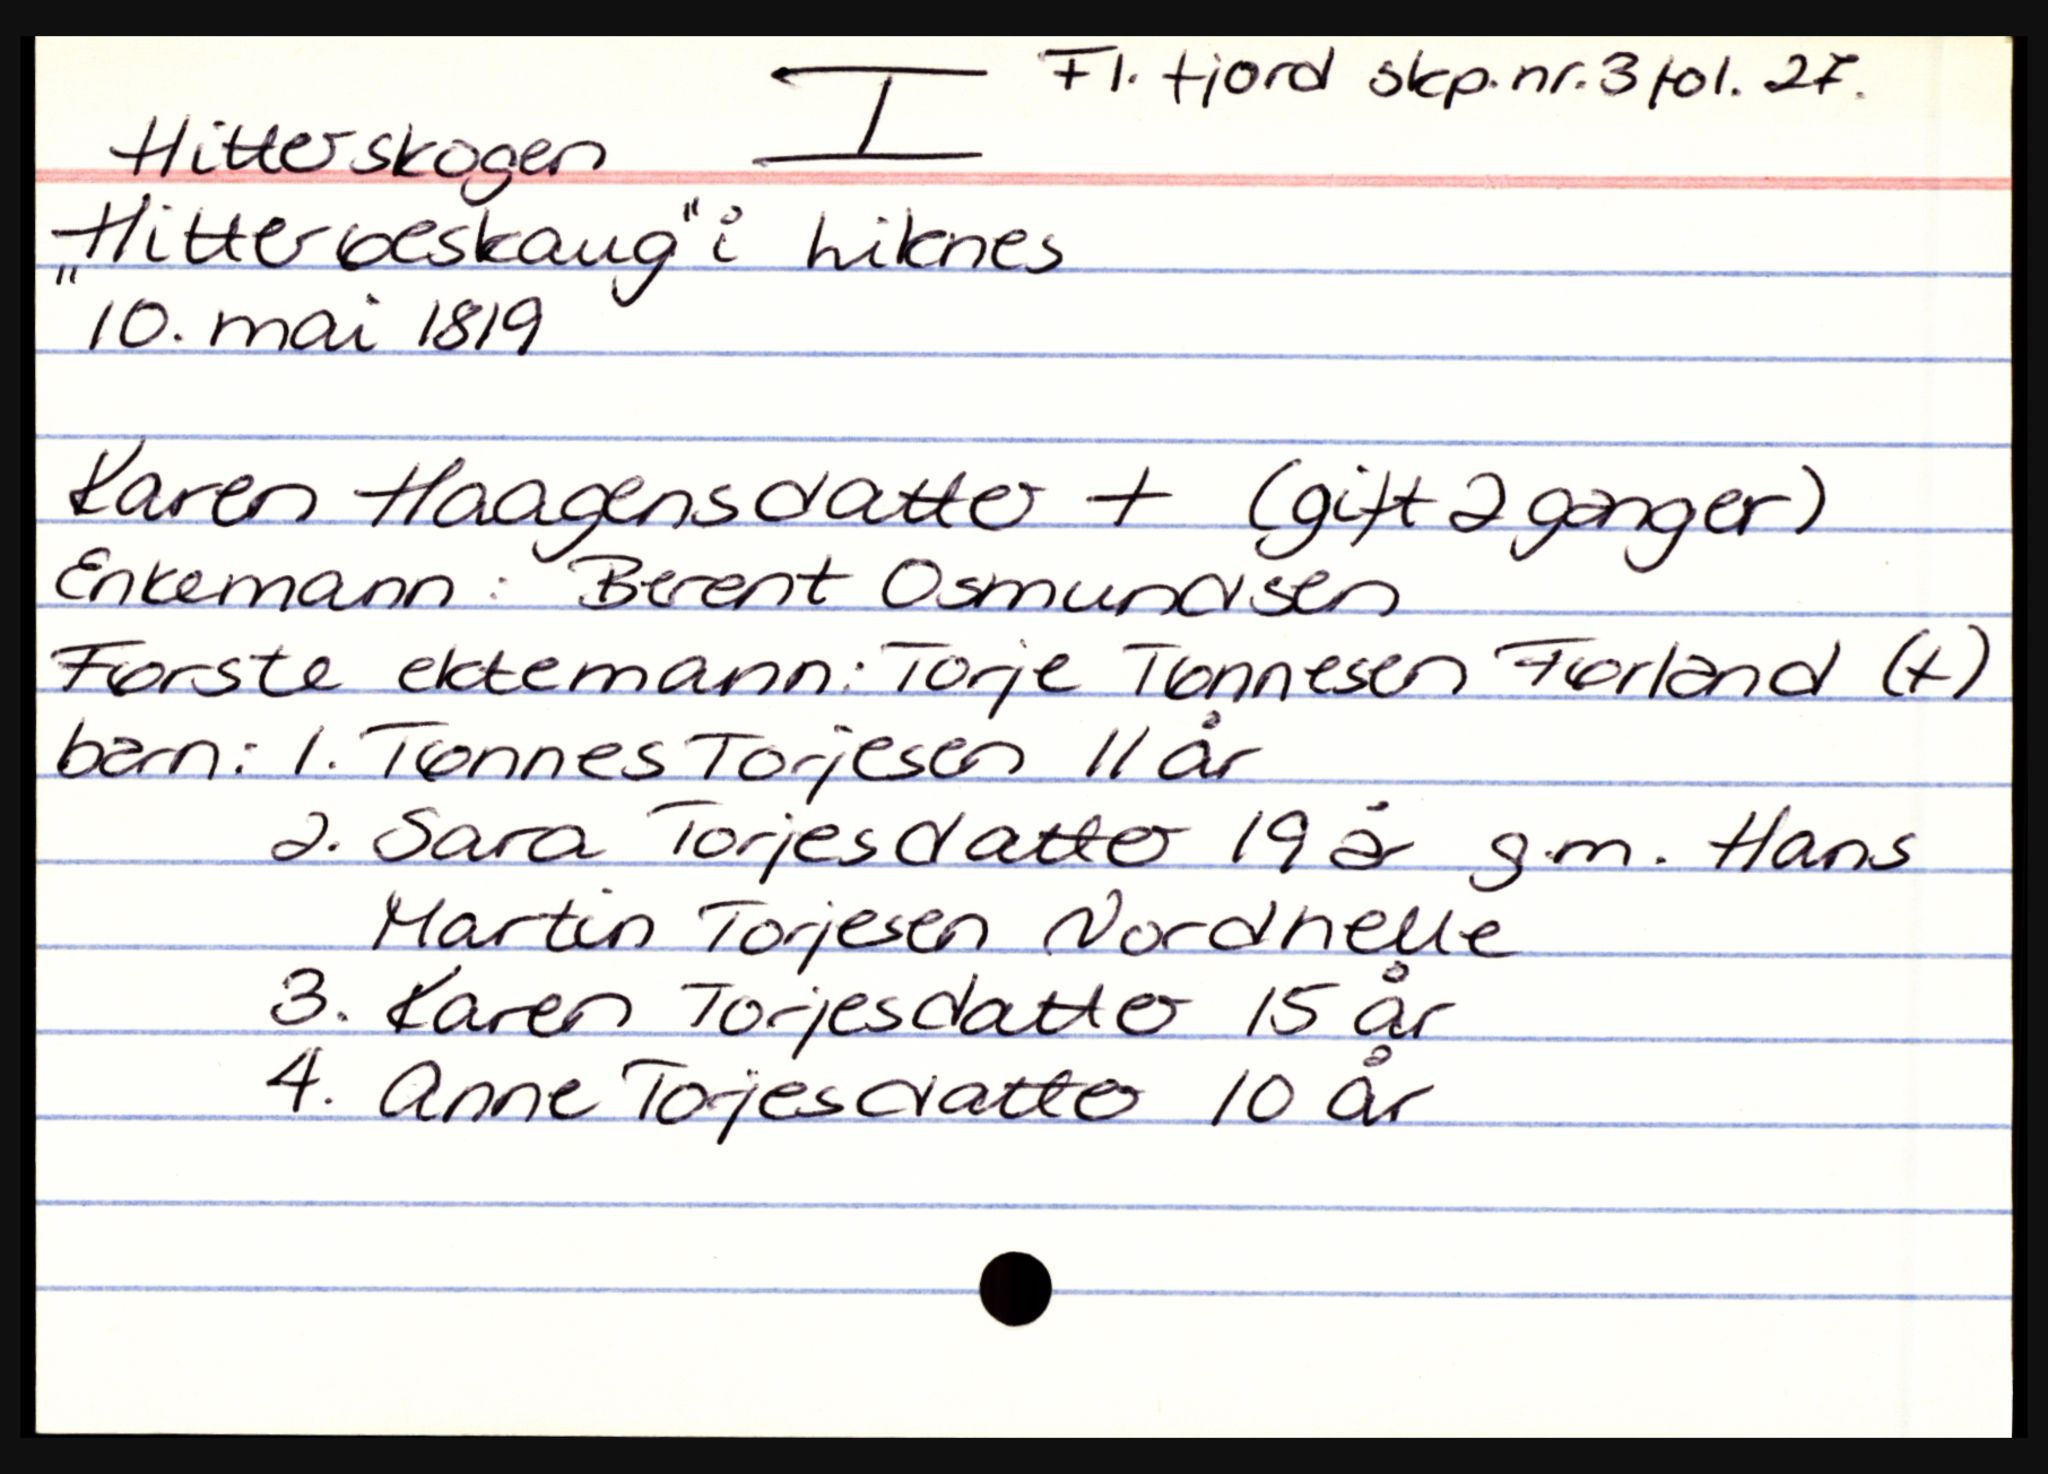 I Fl. fjord skp. nr. 3 fol. 27.
Hitterskogen
„Hitterøeskaug" i Liknes
10. mai 1819
Karen Haagensdatter + (gift 2 ganger)
Enkemann: Berent Osmundsen
Første ektemann: Torje Tønnesen Førland (+)
barn: 1. Tønnes Torjesen 11 år
2. Sara Torjesdatter 19 år g.m. Hans
Martin Torjesen Nordhelle
3. Karen Torjesdatter 15 år
4. Anne Torjesdatter 10 år